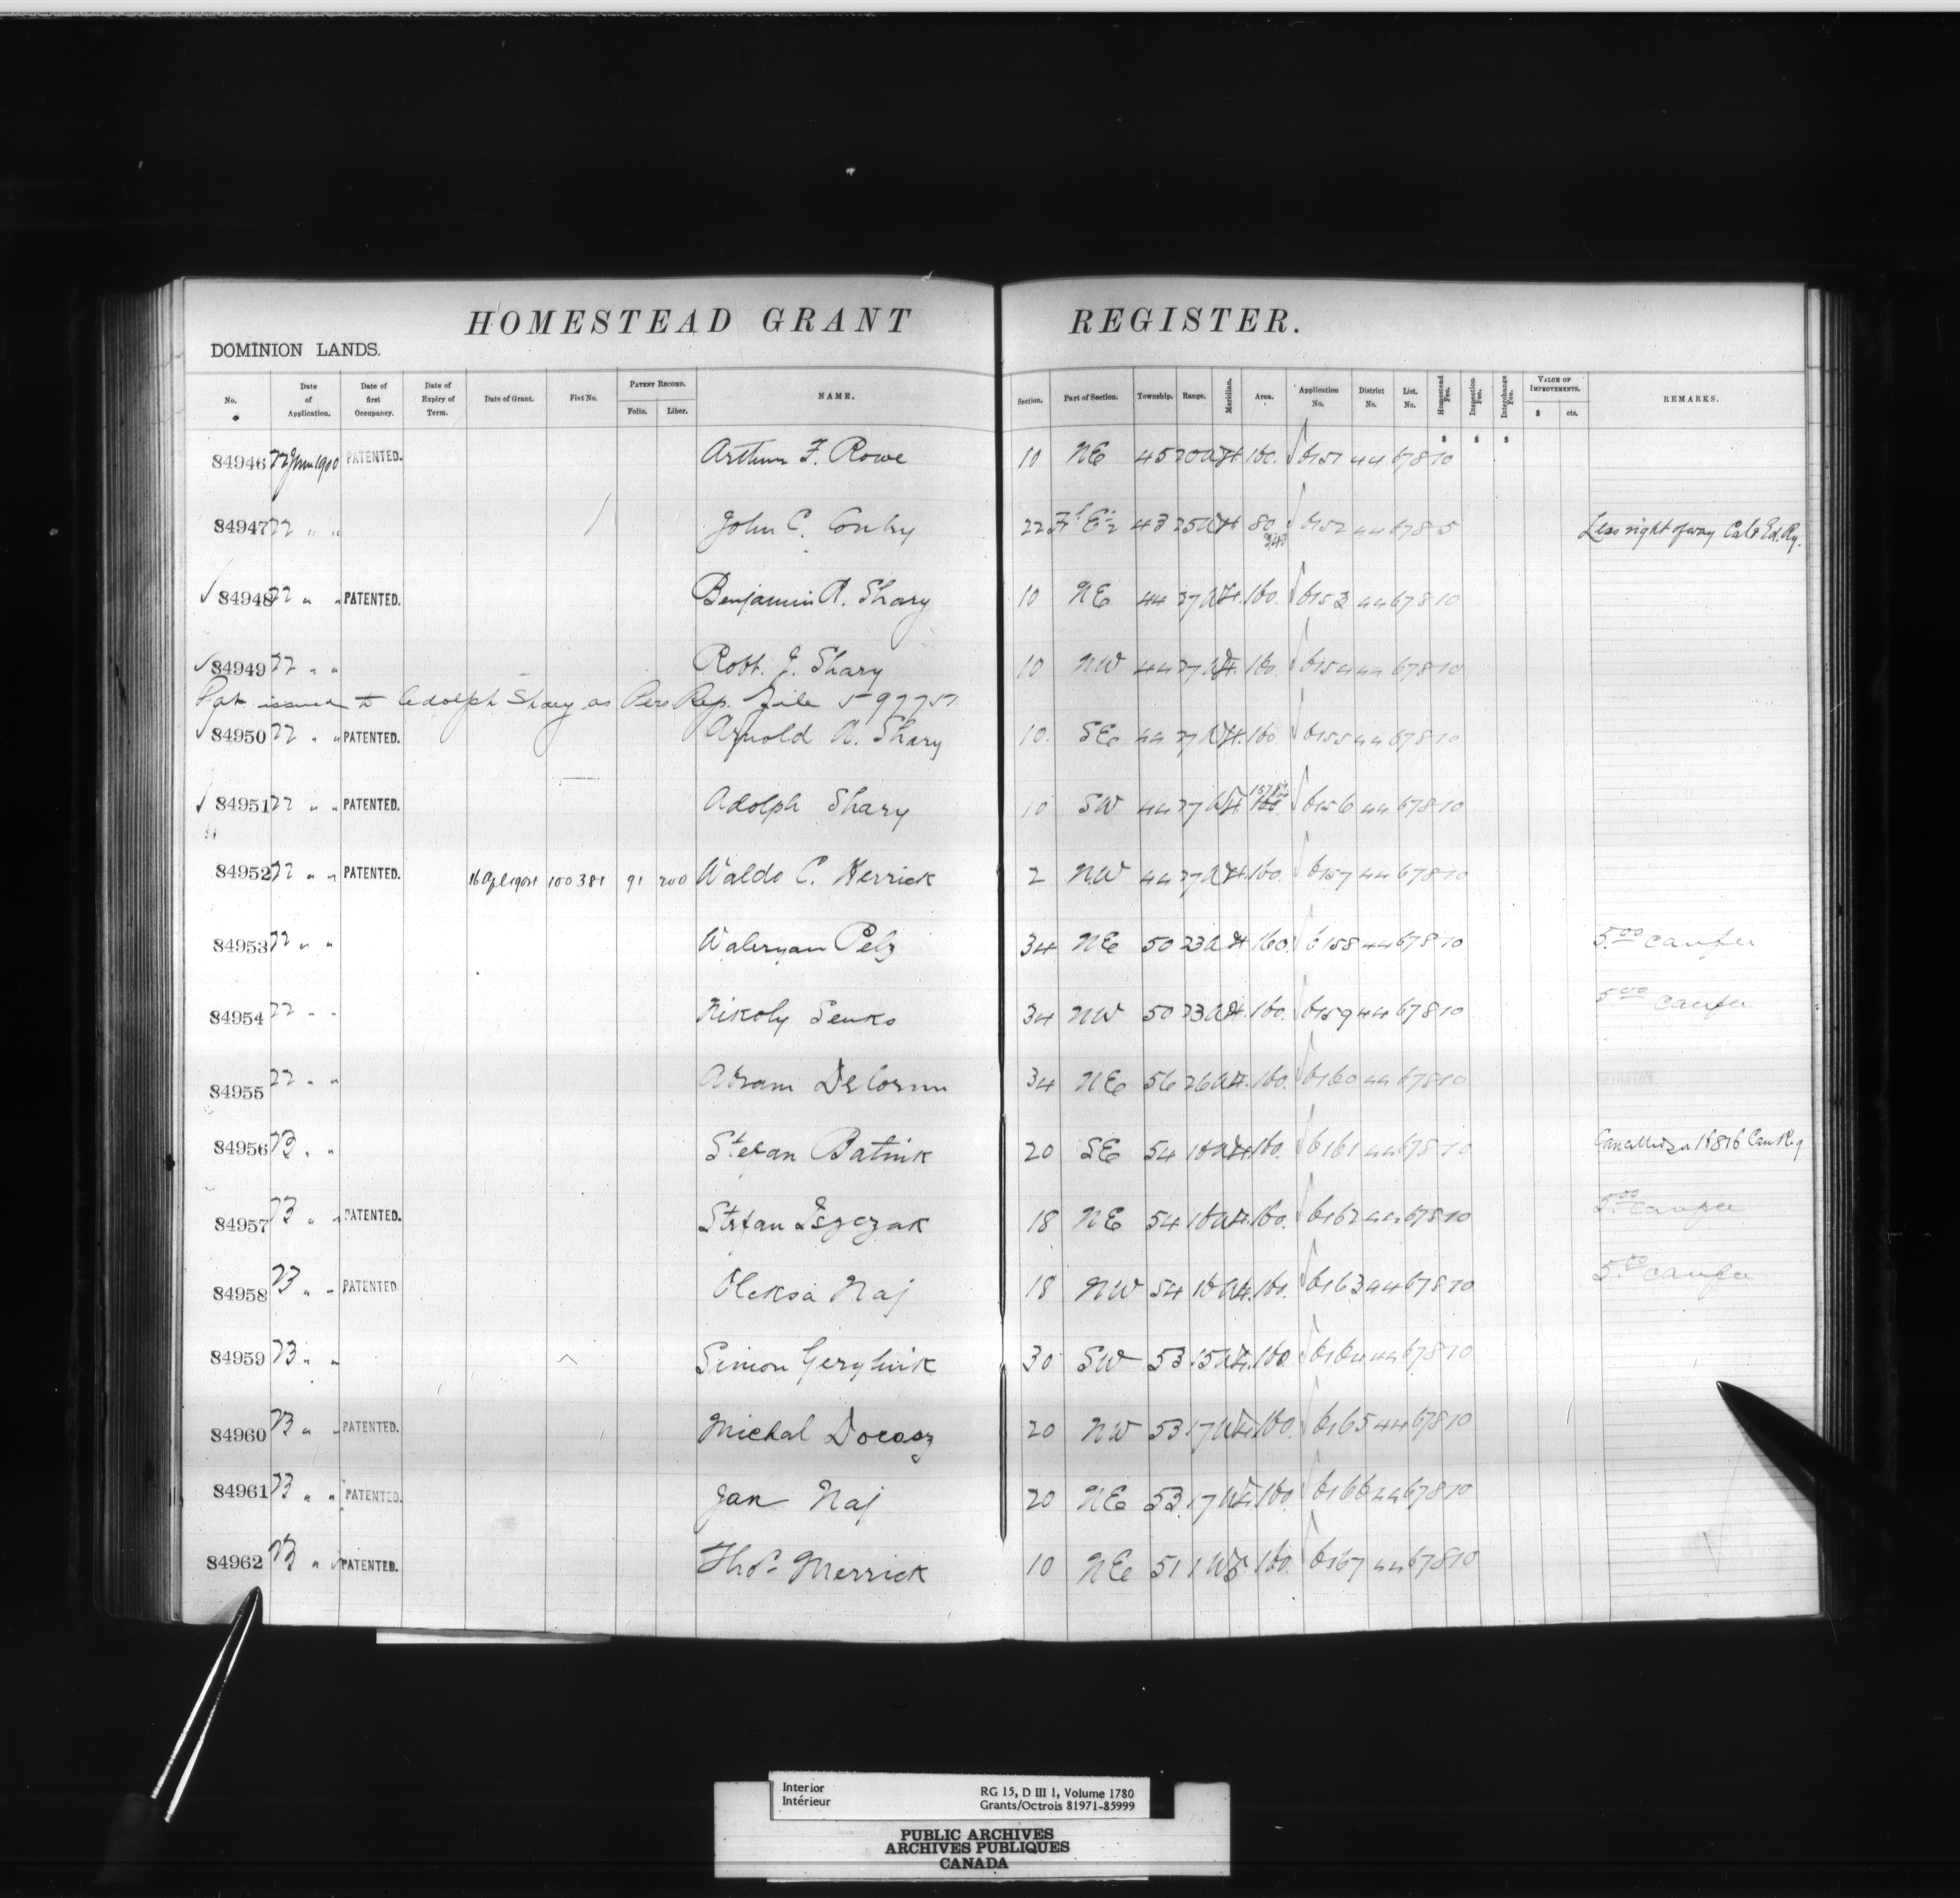 HOMESTEAD GRANT REGISTER.
DOMINION LANDS.
No. Date of Application. Date of first Occupancy. Date of Expiry of Term. Date of Grant. Fiat No. PATENT RECORD. Folio. Liber. NAME. Section. Part of Section. Township. Range. Meridian. Area. Application No. District No. List. No. Homestead Fee. Inspection Fee. Interchange Fee. VALUE OF IMPROVEMENTS. $ cts. REMARKS.
$ $ $
84946 22 June 1900 PATENTED. Arthur F. Rowe 10 NE 45 20 W4 160. 6151 44 678 10
84947 22 " " John C. 22 E½ 43 25 W4 80 6152 44 678 5 Less right of way Cal & Ed. Ry.
84948 22 " " PATENTED. Benjamin A. Shary 10 NE 44 27 W4. 160. 6153 44 678 10
84949 22 " " Robt. J. Shary 10 NW 44 27 W4. 160. 6154 44 678 10
Pat issued to Adolph Shary as Pers Rep. File 597757
84950 22 " " PATENTED. Arnold A. Shary 10. SE 44 27 W4. 160 6155 44 678 10
84951 22 " " PATENTED. Adolph Shary 10 SW 44 27 W4 160. 6156 44 678 10
84952 22 " " PATENTED. 16 Apl 1901 100381 91 200 Waldo C. Herrick 2 NW 44 27 W4. 160. 6157 44 678 10
84953 22 " " Waleryan Pelz 34 NE 50 23 W4 160. 6158 44 678 10 5.00 canfee
84954 22 " " Nikoly Senko 34 NW 50 23 W4. 160. 6159 44 678 10 5.00 canfee
84955 22 " " Abram Delorm 34 NE 56 26 W4. 160. 6160 44 678 10
84956 23 " " Stefan Batink 20 SE 54 16 W4 160. 6161 44 678 10 Cancelled 1816 Can Reg
84957 23 " " PATENTED. Stefan Iszczak 18 NE 54 16 W4. 160. 6162 44 678 10 5.00 canfee
84958 23 " " PATENTED Oleksa Naj 18 NW 54 16 W4. 160. 6163 44 678 10 5.00 canfee
84959 23 " " Simon 30 SW 53 15 W4. 160. 6164 44 678 10
84960 23 " " PATENTED. Michal Dorosz 20 NW 53 17 W4 160. 6165 44 678 10
84961 23 " " PATENTED. Jan Naj 20 NE 53 17 W4 160 6166 44 678 10
84962 23 " " PATENTED. Thos. Merrick 10 NE 51 1 W5. 160. 6167 44 678 10
Interior RG 15, D III 1, Volume 1780
Intérieur Grants/Octrois 81971-85999
PUBLIC ARCHIVES
ARCHIVES PUBLIQUES
CANADA